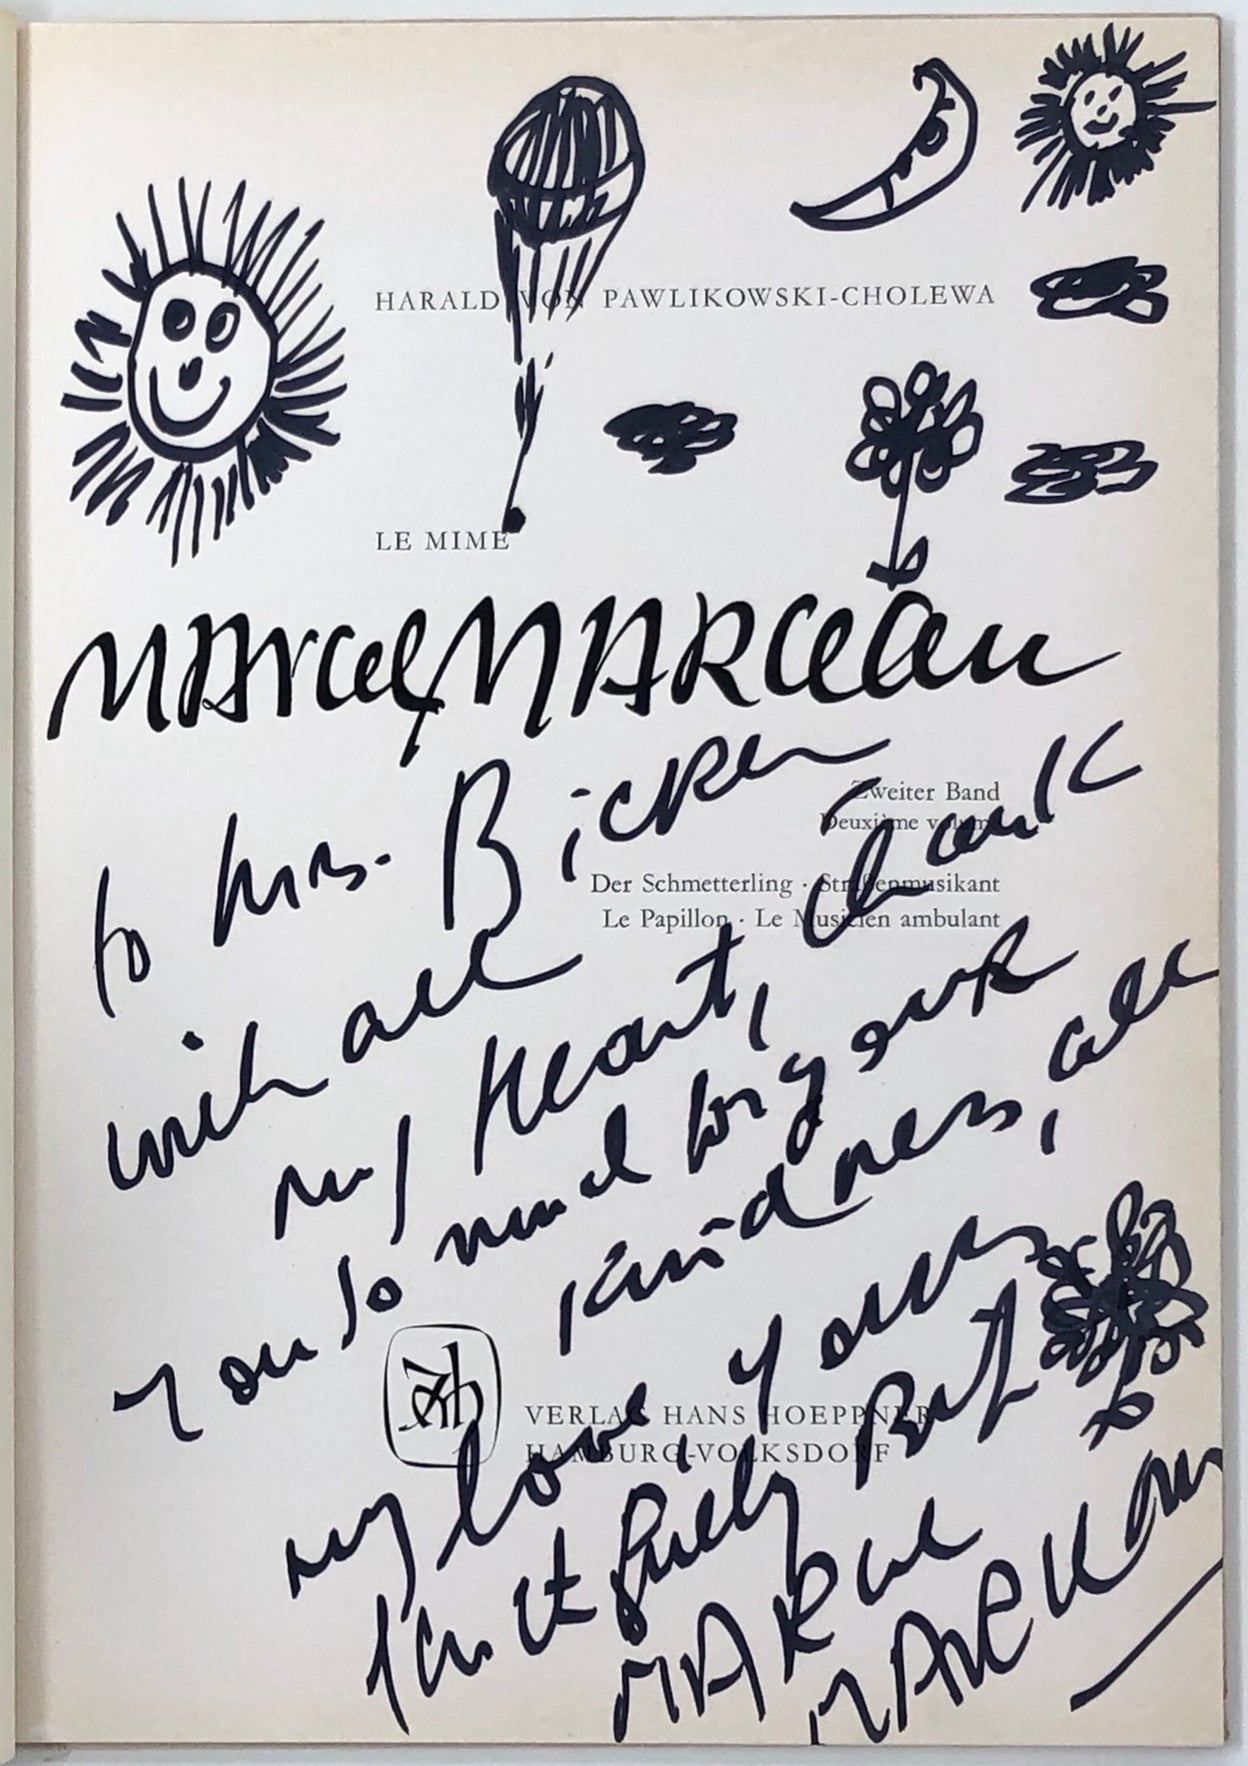 HARALD VON PAWLIKOWSKI-CHOLEWA
LE MIME
MARCEL MARCEAU
Zweiter Band
Deuxième volume
Der Schmetterling · Straßenmusikant
Le Papillon · Le Musicien ambulant
to Mrs. Bicker
with all
my Heart, thank
you so much for your
kindness, all
my love, yours
faithfully But
MARCEL
MARCEAU
VERLAG HANS HOEPPNER
HAMBURG-VOLKSDORF